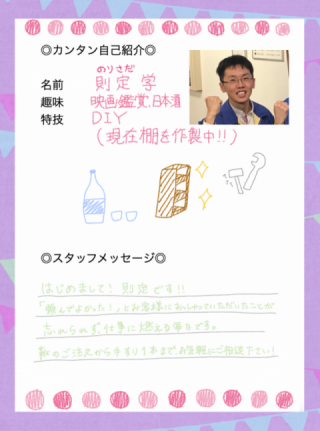 ◎カンタン自己紹介◎
のりさだ
名前 則定 学
趣味 映画鑑賞、日本酒
特技 DIY
(現在棚を作製中!!)
◎スタッフメッセージ◎
はじめまして! 則定です!!
「頼んでよかった!」とお客様におっしゃっていただいたことが
忘れられず仕事に燃える毎日です。
のご注文から手すり1本まで、お気軽にご相談下さい!